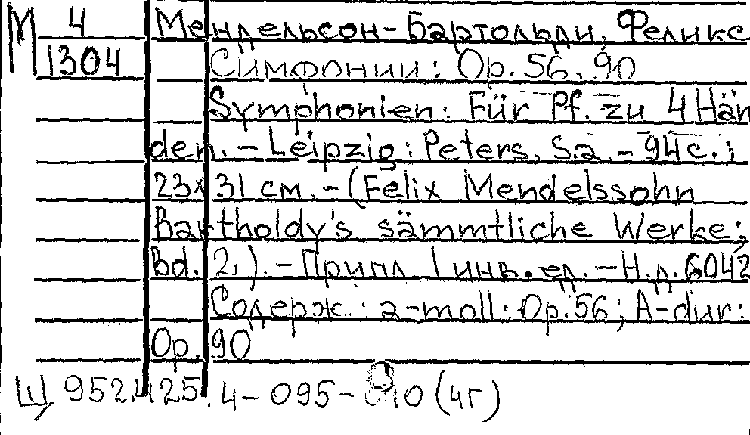 М 4 Мендельсон-Бартольди, Феликс
1304 Симфонии: Op. 56, 90
Symphonien: Für Pf. zu 4 Hän
den. - Leipzig: Peters, S.a. - 94 с.;
23x31 см. - (Felix Mendelssohn
Bartholdy's sämmtliche Werke;
Bd. 2.). - Припл. 1 инв. ед. - Н.д. 6042
Содерж.: a-moll: Op. 56; A-dur:
Op. 90
4- 095- (4г)